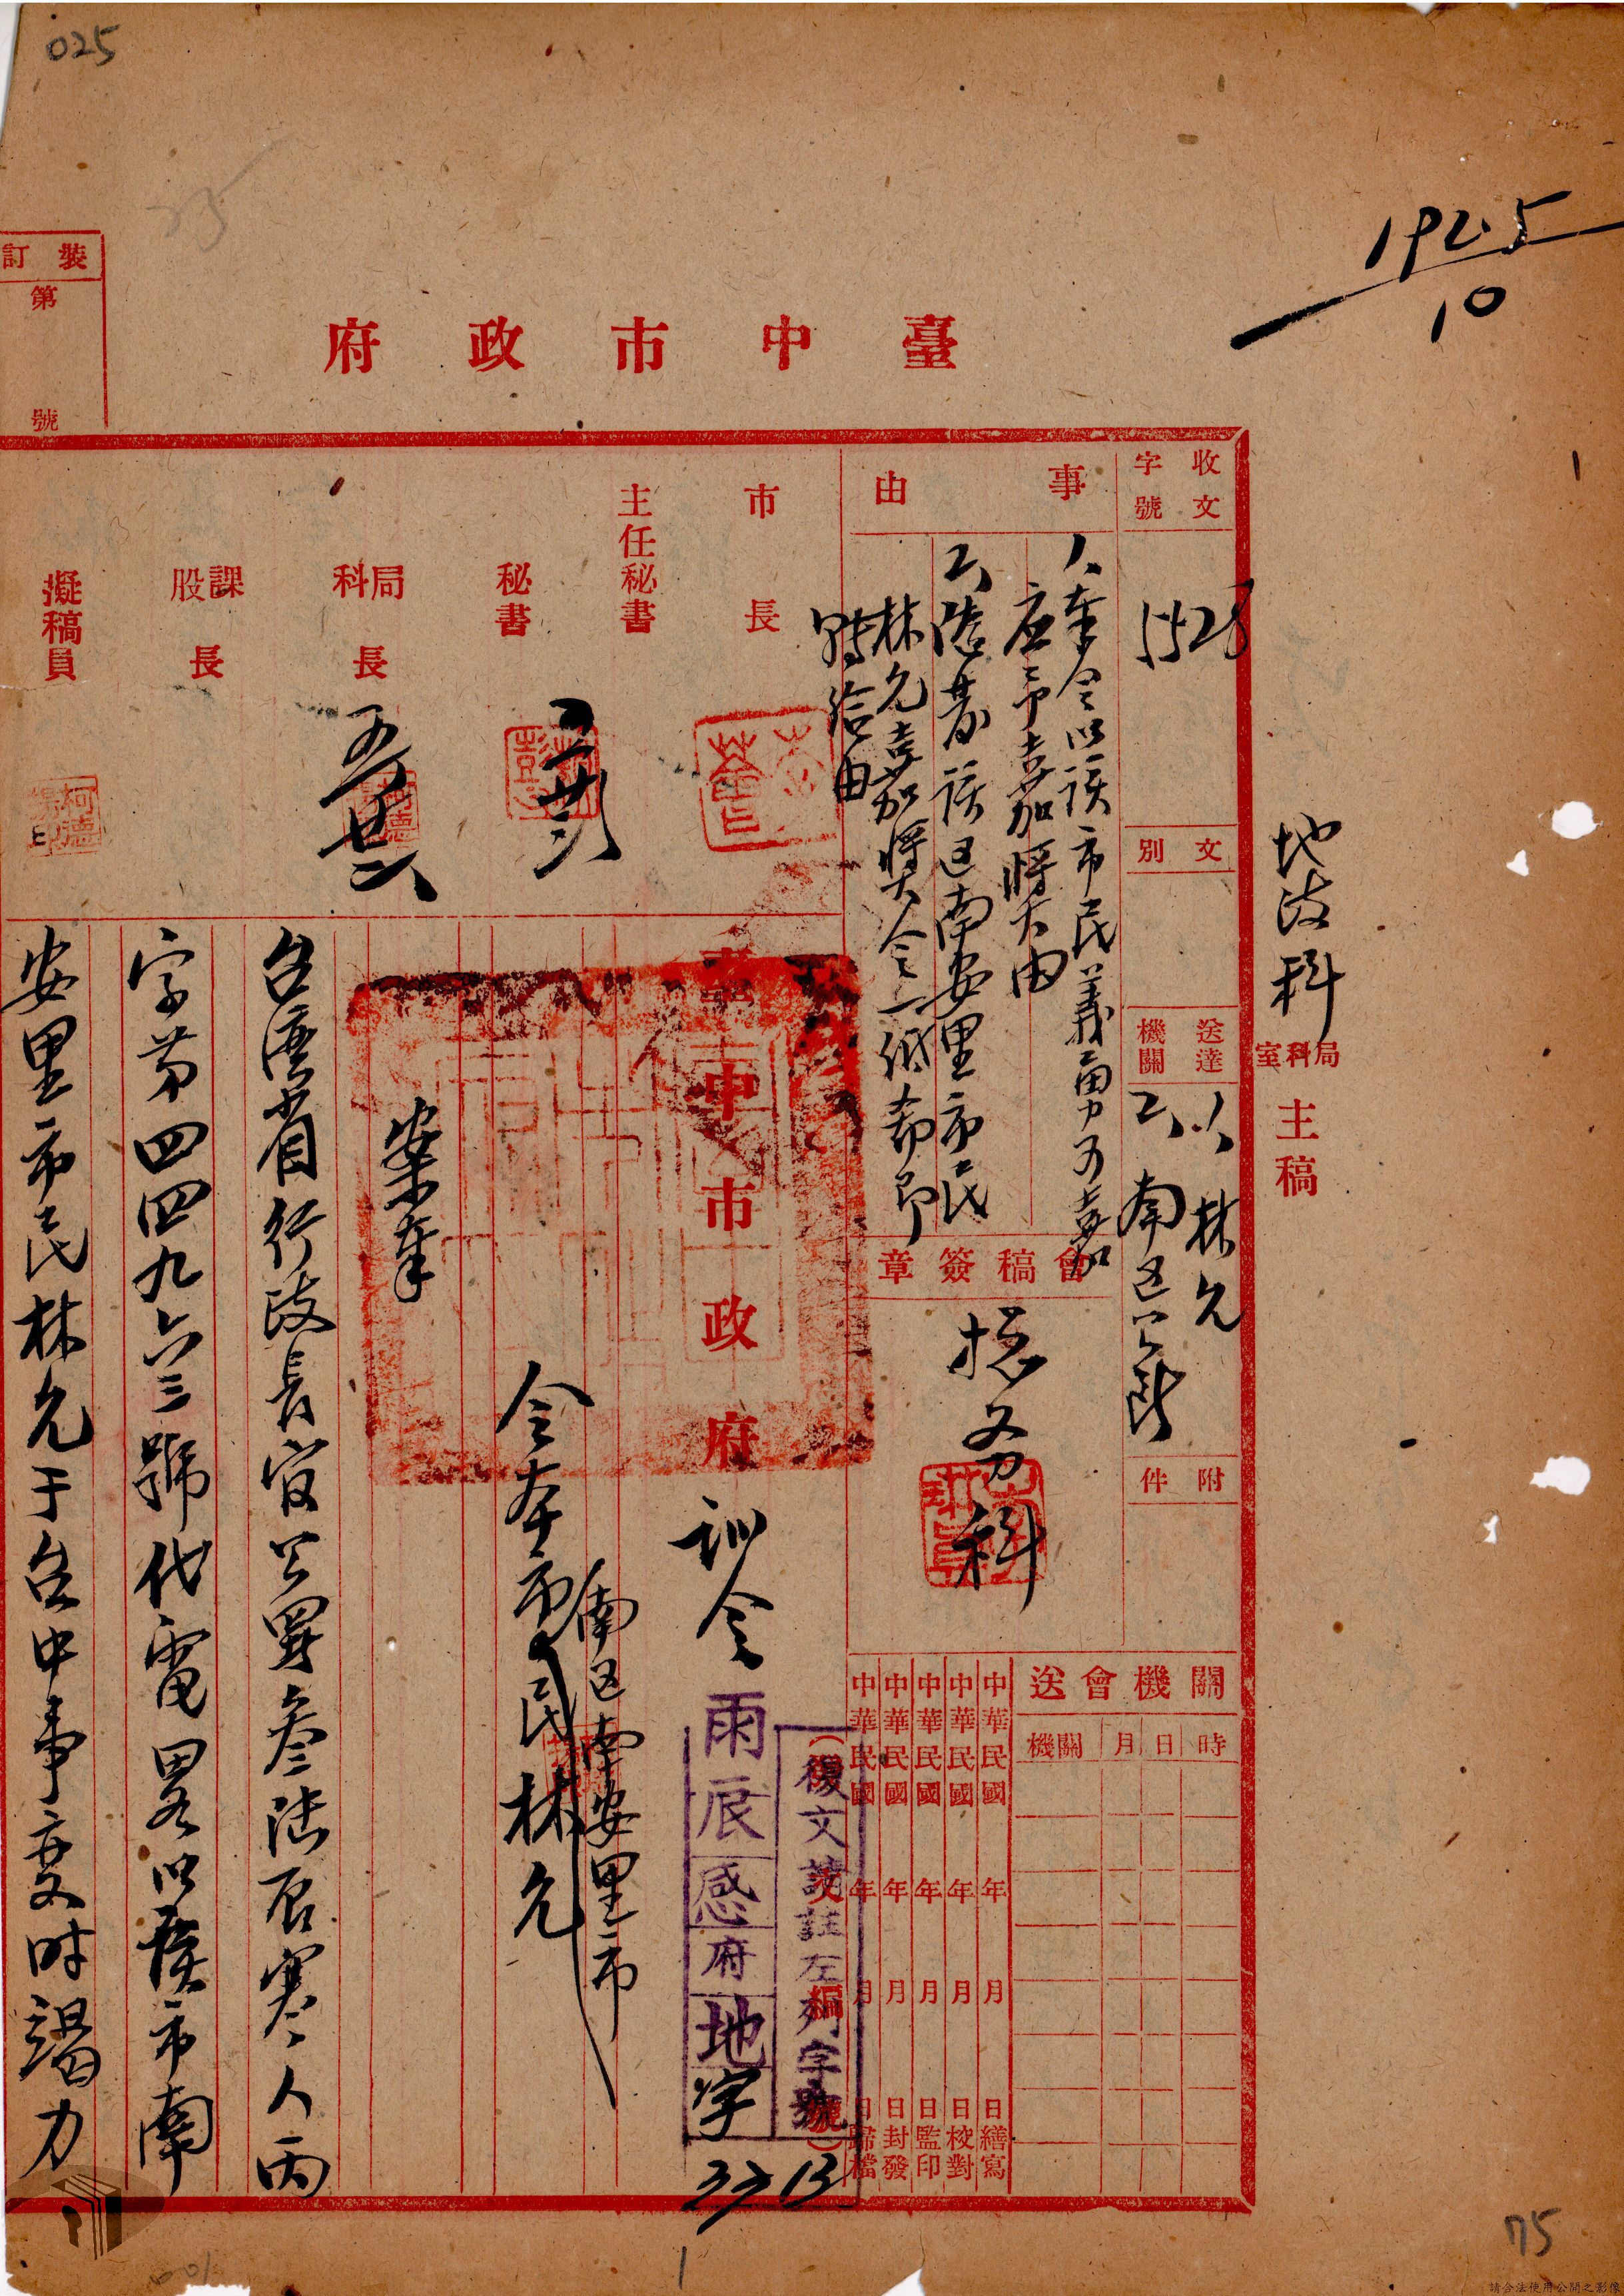 025
75
1925
10
裝訂
第 號
臺中市政府
地政科
局科室主稿
收文字號
1528
文別
送達機關
1、林允
2、南区公所
附件
事由
1、奉令以該市民義勇可嘉
应予嘉獎由
2、隨發該区南安里市民
林允嘉獎令一紙希即
轉給由
會稿簽章
總务科
關機會送
機關 月 日 時
中華民國 年 月 日繕寫
中華民國 年 月 日校對
中華民國 年 月 日監印
中華民國 年 月 日封發
中華民國 年 月 日歸檔
市長
主任秘書
秘書
局科長
課股長
擬稿員
柯德
印
(復文請註左列字號)
臺中市政府訓令
雨辰感府地字
3313
南区南安里市
令本市民林允
案奉
台灣省行政長官公署叁陆辰寒人丙
字第四四九六三號代電畧以該市南
安里市民林允于台中事变时竭力
75
請合法使用公開之影像